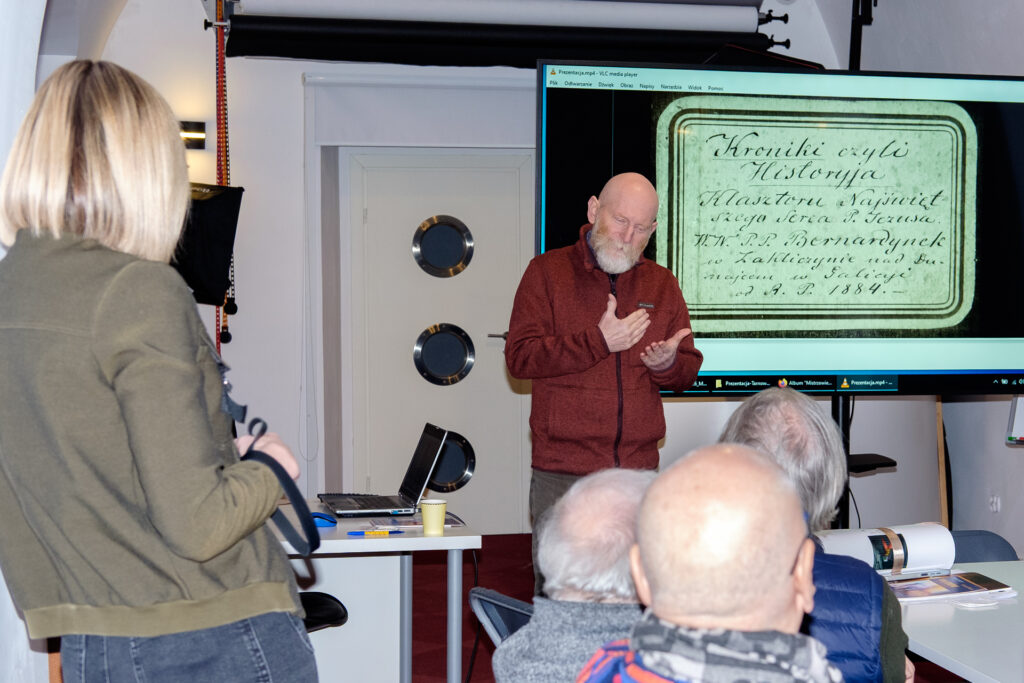 Prezentacja.mp4 - VLC media player
Plik Odtwarzanie Dźwięk Obraz Napisy Narzędzia Widok Pomoc
Kroniki czyli
Historyja
Klasztoru Najświęt
szego Serca P. Jezusa.
W.W. P.P. Bernardynek
w Zakliczynie nad Du-
najcem w Galicyi
od R. P. 1884. —
Prezentacja-Tarnow... Album "Mistrzowie... Prezentacja.mp4 - ...
Columbia